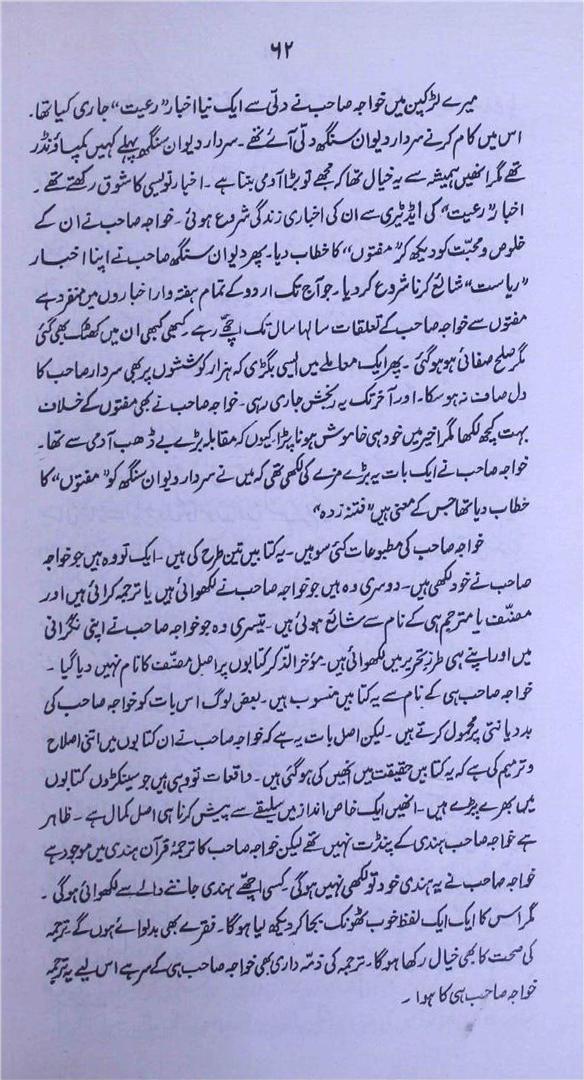 ۶۲
میرے لڑکپن میں خواجہ صاحب نے دلّی سے ایک نیا اخبار "رعیت" جاری کیا تھا۔
اس میں کام کرنے سردار دیوان سنگھ دلّی آئے تھے۔ سردار دیوان سنگھ پہلے کہیں کمپاؤنڈر
تھے مگر انھیں ہمیشہ سے یہ خیال تھا کہ مجھے تو بڑا آدمی بننا ہے۔ اخبار نویسی کا شوق رکھتے تھے۔
اخبار "رعیت" کی ایڈیٹری سے ان کی اخباری زندگی شروع ہوئی۔ خواجہ صاحب نے ان کے
خلوص و محبت کو دیکھ کر "مفتوں" کا خطاب دیا۔ پھر دیوان سنگھ صاحب نے اپنا اخبار
"ریاست" شائع کرنا شروع کر دیا۔ جو آج تک اردو کے تمام ہفتہ وار اخباروں میں منفرد ہے
مفتوں سے خواجہ صاحب کے تعلقات سالہا سال تک اچھّے رہے۔ کبھی کبھی ان میں کھٹک بھی گئی
مگر صلح صفائی ہو ہو گئی۔ پھر ایک معاملے میں ایسی بگڑی کہ ہزار کوششوں پر بھی سردار صاحب کا
دل صاف نہ ہو سکا۔ اور آخر تک یہ رنجش جاری رہی۔ خواجہ صاحب نے بھی مفتوں کے خلاف
بہت کچھ لکھا مگر اخیر میں خود ہی خاموش ہونا پڑا۔ کیوں کہ مقابلہ بڑے بے ڈھب آدمی سے تھا۔
خواجہ صاحب نے ایک بات یہ بڑے مزے کی لکھی تھی کہ میں نے سردار دیوان سنگھ کو "مفتوں" کا
خطاب دیا تھا جس کے معنی ہیں "فتنہ زدہ"
خواجہ صاحب کی مطبوعات کئی سو ہیں۔ یہ کتابیں تین طرح کی ہیں۔ ایک تو وہ ہیں جو خواجہ
صاحب نے خود لکھی ہیں۔ دوسری وہ ہیں جو خواجہ صاحب نے لکھوائی ہیں یا ترجمہ کرائی ہیں اور
مصنّف یا مترجم ہی کے نام سے شائع ہوئی ہیں۔ تیسری وہ جو خواجہ صاحب نے اپنی نگرانی
میں اور اپنے ہی طرزِ تحریر میں لکھوائی ہیں۔ مؤخر الذّکر کتابوں پر اصل مصنّف کا نام نہیں دیا گیا۔
خواجہ صاحب ہی کے نام سے یہ کتابیں منسوب ہیں۔ بعض لوگ اس بات کو خواجہ صاحب کی
بد دیانتی پر محمول کرتے ہیں۔ لیکن اصل بات یہ ہے کہ خواجہ صاحب نے ان کتابوں میں اتنی اصلاح
و ترمیم کی ہے کہ یہ کتابیں حقیقت میں انھیں کی ہو گئی ہیں۔ واقعات تو وہی ہیں جو سینکڑوں کتابوں
میں بھرے پڑے ہیں۔ انھیں ایک خاص انداز میں سلیقے سے پیش کرنا ہی اصل کمال ہے۔ ظاہر
ہے خواجہ صاحب ہندی کے پنڈت نہیں تھے لیکن خواجہ صاحب کا ترجمۂ قرآن ہندی میں موجود ہے
خواجہ صاحب نے یہ ہندی خود تو لکھی نہیں ہوگی۔ کسی اچھّے ہندی جاننے والے سے لکھوائی ہوگی۔
مگر اس کا ایک ایک لفظ خوب ٹھونک بجا کر دیکھ لیا ہوگا۔ فقرے بھی بدلوائے ہوں گے۔ ترجمہ
کی صحت کا بھی خیال رکھا ہوگا۔ ترجمہ کی ذمّہ داری بھی خواجہ صاحب ہی کے سر ہے اس لیے یہ ترجمہ
خواجہ صاحب ہی کا ہوا۔